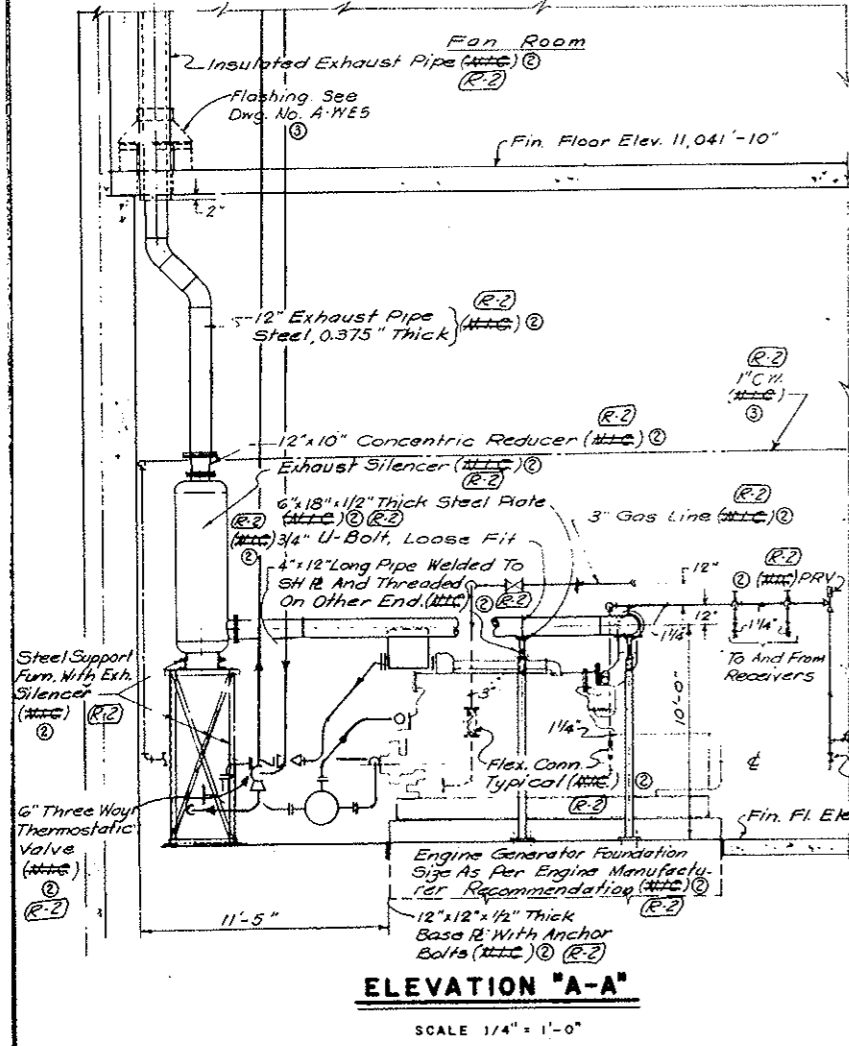 Fan Room
Insulated Exhaust Pipe (N.I.C) ②
R-2
Flashing See
Dwg. No. A-WE5
③
Fin. Floor Elev. 11,041'-10"
2"
12" Exhaust Pipe
Steel, 0.375" Thick
R-2
(N.I.C) ②
R-2
1" C.W.
(N.I.C)
③
R-2
12"x10" Concentric Reducer (N.I.C) ②
Exhaust Silencer (N.I.C) ②
R-2
6"x18"x1/2" Thick Steel Plate
(N.I.C) ② R-2
R-2
(N.I.C) 3/4" U-Bolt, Loose Fit
②
4"x12" Long Pipe Welded To
SH PL And Threaded
On Other End. (N.I.C) ② R-2
R-2
3" Gas Line (N.I.C) ②
12"
12"
1 1/4"
R-2
② (N.I.C) PRV
1 1/4"
To And From
Receivers
10'-0"
Steel Support
Furn. With Exh.
Silencer
(N.I.C) R-2
②
3"
1 1/4"
Flex. Conn.
Typical (N.I.C) ②
R-2
℄
6" Three Way
Thermostatic
Valve
(N.I.C)
②
R-2
Fin. Fl. Ele
Engine Generator Foundation
Size As Per Engine Manufactu-
rer Recommendation (N.I.C) ②
R-2
11'-5"
12"x12"x1/2" Thick
Base PL With Anchor
Bolts (N.I.C) ② R-2
ELEVATION "A-A"
SCALE 1/4" = 1'-0"